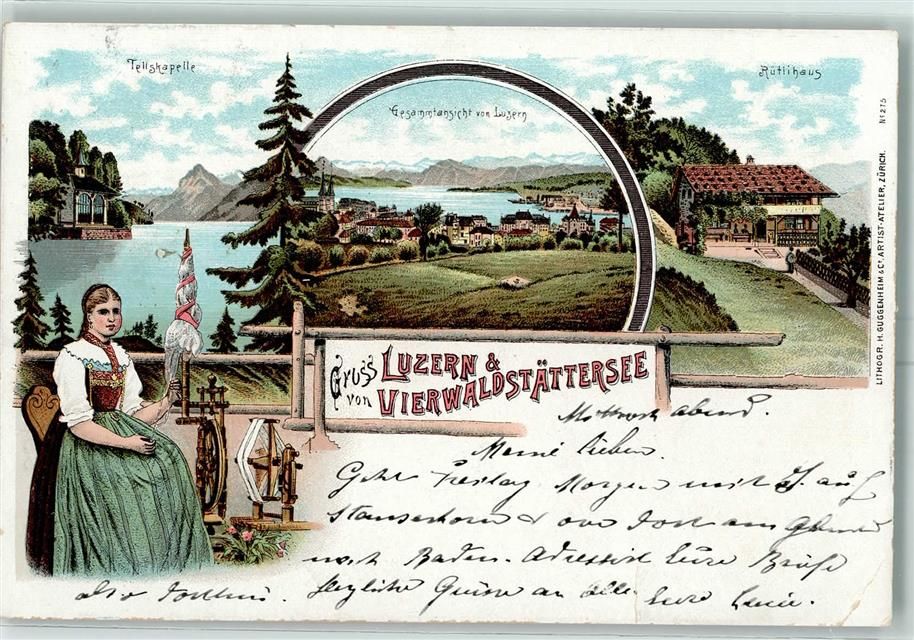 Tellskapelle
Gesammtansicht von Luzern
Rütlihaus
Nº 275
LITHOGR. H. GUGGENHEIM & Cº, ARTIST-ATELIER, ZÜRICH.
Gruss von LUZERN & VIERWALDSTÄTTERSEE
Mittwoch abend.
Meine Lieben.
Gehe Freitag Morgen mit auf
Stanserhorn & von dort am Abend
nach Baden. Adressirt Eure Briefe
also dorthin. Herzliche Grüsse an alle Eure